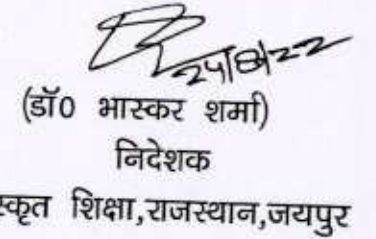 24/8/22
(डॉ0 भास्कर शर्मा)
निदेशक
स्कृत शिक्षा,राजस्थान,जयपुर